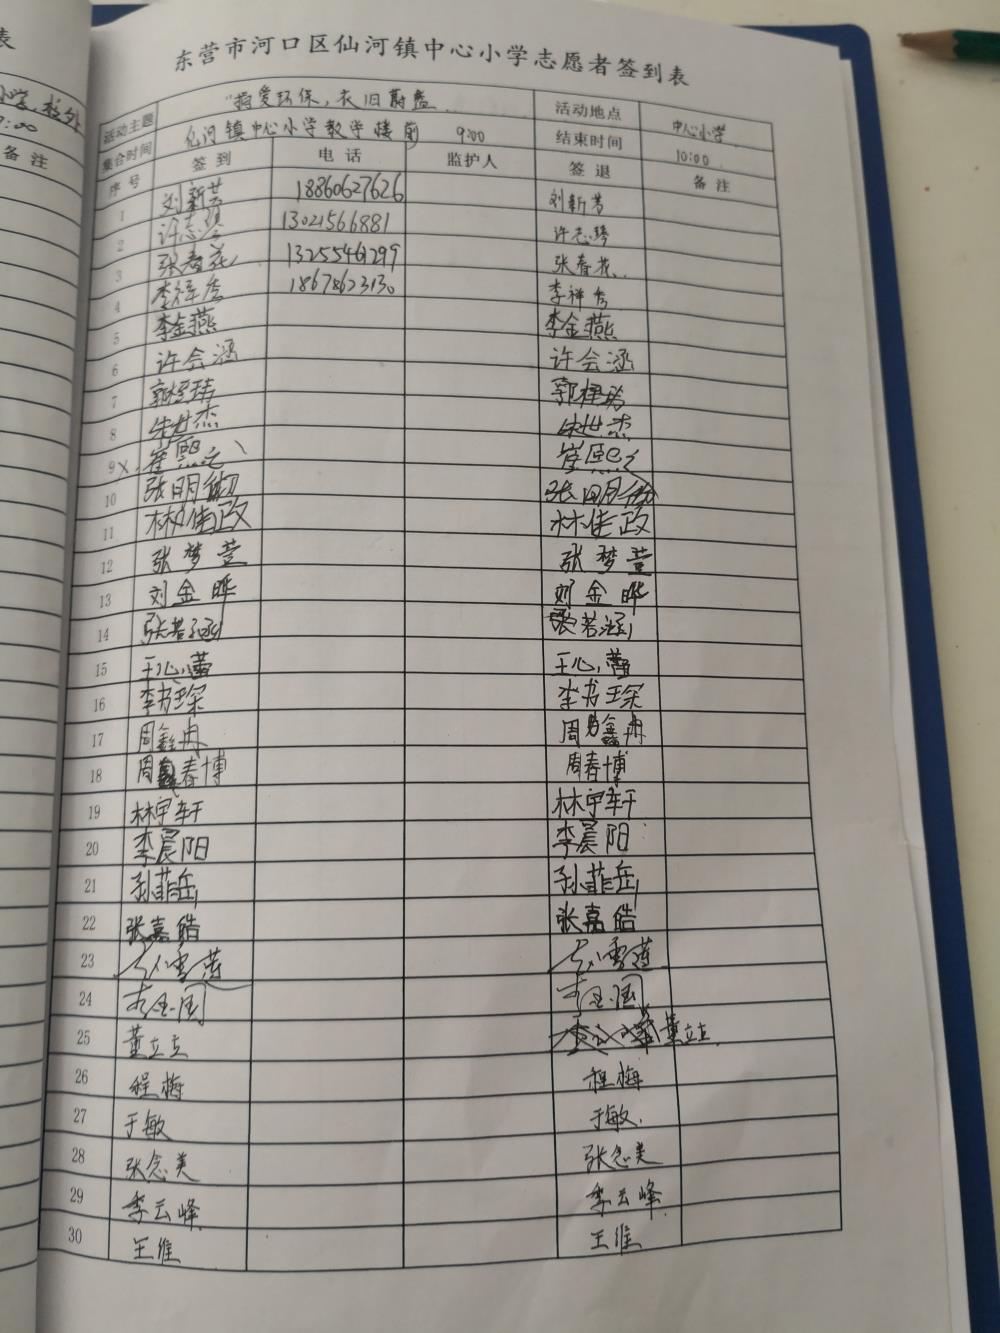 表
小学,校外
9:00
备注
东营市河口区仙河镇中心小学志愿者签到表
活动主题 "捐爱环保,衣旧蔚蓝 活动地点 中心小学
集合时间 仙河镇中心小学教学楼前 9:00 结束时间 10:00
序号 签到 电话 监护人 签退 备注
1 刘新芳 18860627626 刘新芳
2 许志琴 13021566881 许志琴
3 张春花 13255469299 张春花
4 李祥秀 18678623130 李祥秀
5 李金燕 李金燕
6 许会涵 许会涵
7 郭
8 朱世杰 朱世杰
9 x 崔熙之 崔熙之
10 张明 张明
11 林佳政 林佳政
12 张梦萱 张梦萱
13 刘金晔 刘金晔
14 张若涵 张若涵
15 王心蕾 王心蕾
16 李书琛 李书琛
17 周鑫冉 周鑫冉
18 周春博 周春博
19 林宇轩 林宇轩
20 李晨阳 李晨阳
21 孙菲岳 孙菲岳
22 张嘉皓 张嘉皓
23 雪莲 雪莲
24
25 董立立 董立立
26 程梅 程梅
27 于敏 于敏
28 张念美 张念美
29 李云峰 李云峰
30 王维 王维